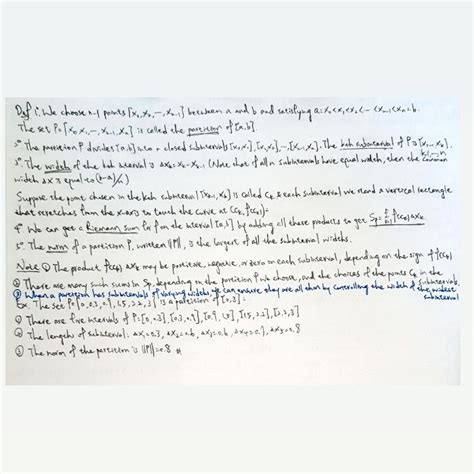 Def 1. We choose n-1 points [x₁, x₂, –, xₙ₋₁] between a and b and satisfying a=x₀<x₁<x₂<– <xₙ₋₁<xₙ=b.
The set P=[x₀, x₁, –, xₙ₋₁, xₙ] is called the partition of [a,b]
The partition P divides [a,b] into n closed subintervals [x₀,x₁], [x₁,x₂], –, [xₙ₋₁,xₙ]. The kth subinterval of P is [xₖ₋₁, xₖ].
3° The width of the kth interval is Δxₖ=xₖ-xₖ₋₁ (Note that if all n subintervals have equal width, then the
width Δx is equal to (b-a)/n)
Suppose the point chosen in the kth subinterval [xₖ₋₁, xₖ] is called cₖ & each subinterval we stand a vertical rectangle
that stretches from the x-axis to touch the curve at (cₖ, f(cₖ)):
4° We can get a Riemann sum for f on the interval [a,b] by adding all these products to get Sₚ=Σ f(cₖ)Δxₖ
5° The norm of a partition P, written ||P||, is the largest of all the subinterval widths.
Note ① The product f(cₖ) Δxₖ may be positive, negative, or zero on each subinterval, depending on the sign of f(cₖ)
② There are many such sums in Sₚ, depending on the partition P we choose, and the choices of the points cₖ in the subintervals.
③ When a partition has subintervals of varying widths, we can ensure they are all thin by controlling the width of the widest subinterval
Ex. The set P=[0, 0.3, 0.9, 1.5, 2.2, 3] is a partition of [0,3]:
① There are five intervals of P: [0, 0.3], [0.3, 0.9], [0.9, 1.5], [1.5, 2.2], [2.2, 3]
② The lengths of subinterval: Δx₁=0.3, Δx₂=0.6, Δx₃=0.6, Δx₄=0.7, Δx₅=0.8
③ The norm of the partition is ||P||=0.8 #